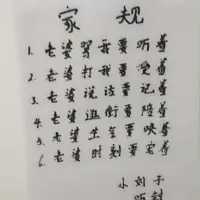 家 规
1. 老婆骂我要听着
2. 老婆打我要受着
3. 老婆说话要记着
4. 老婆逛街要陪着
5. 老婆生气要哄着
6. 老婆时刻要宠着
小刘子